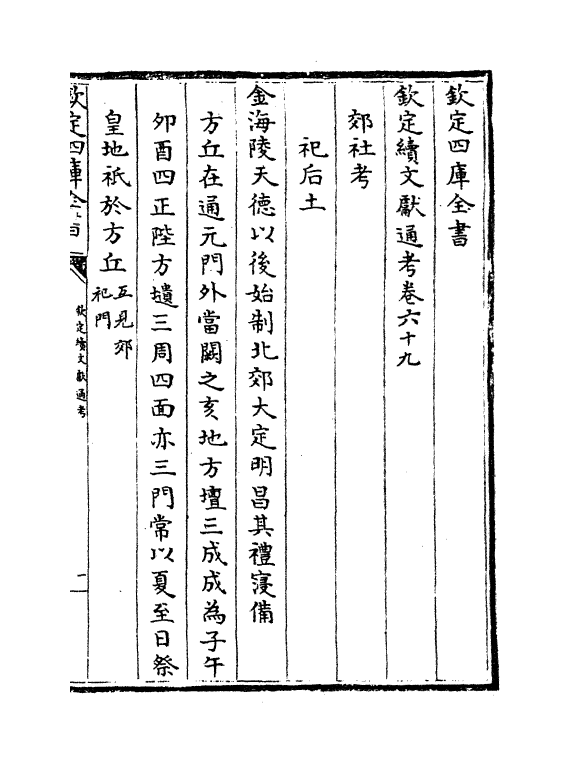 欽定四庫全書
欽定續文獻通考卷六十九
郊社考
祀后土
金海陵天德以後始制北郊大定明昌其禮寖備
方丘在通元門外當闕之亥地方壇三成成為子午
卯酉四正陛方壝三周四面亦三門常以夏至日祭
皇地祇於方丘互見郊
祀門
欽定四庫全書
欽定續文獻通考